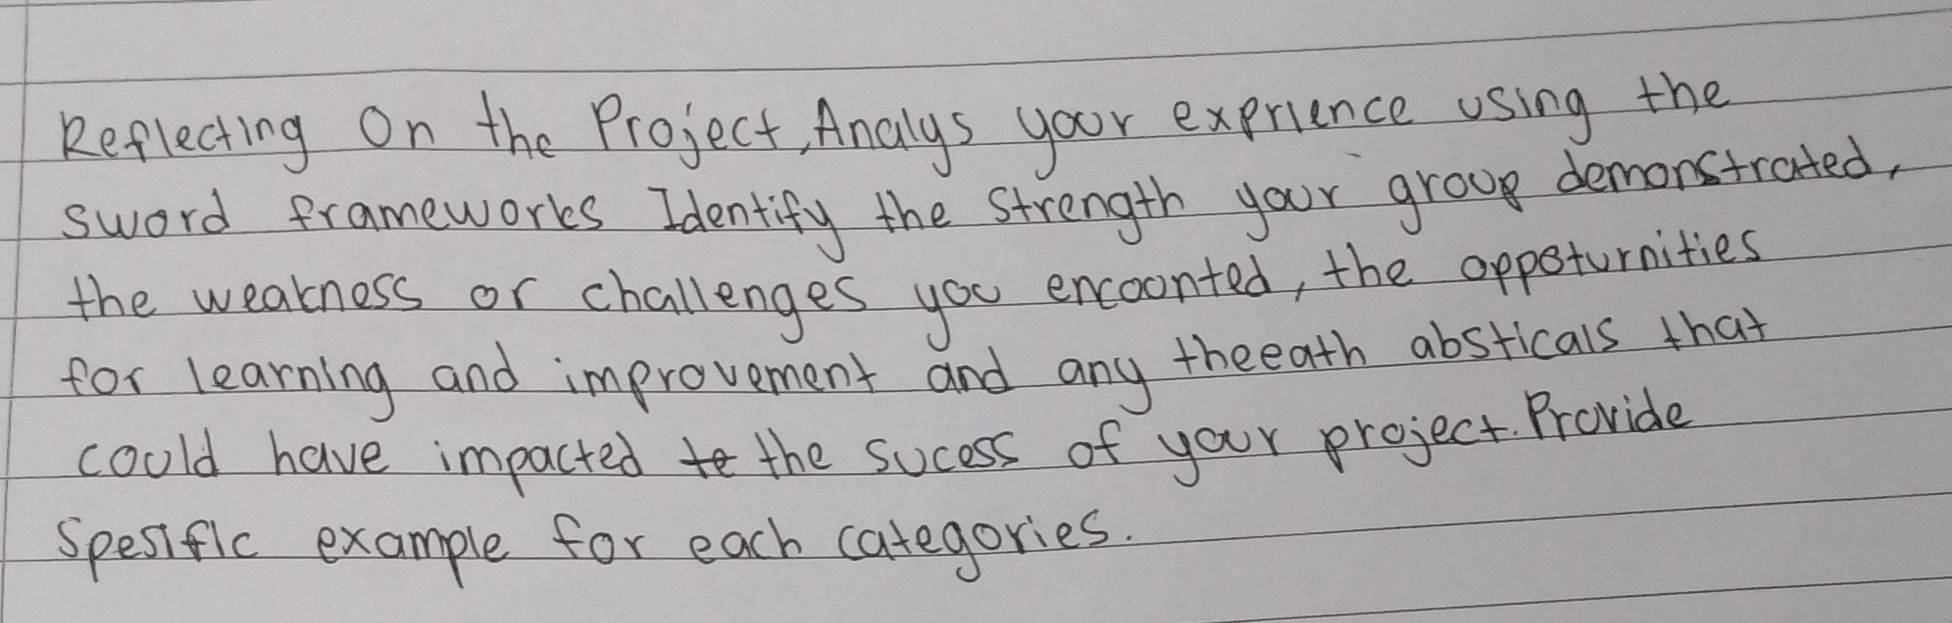 Reflecting On the Project, Analys your exprience using the
sword frameworks Identify the strength your group demonstrated,
the weakness or challenges you encounted, the oppoturnities
for learning and improvement and any theeath absticals that
could have impacted to the sucess of your project. Provide
Spesific example for each categories.